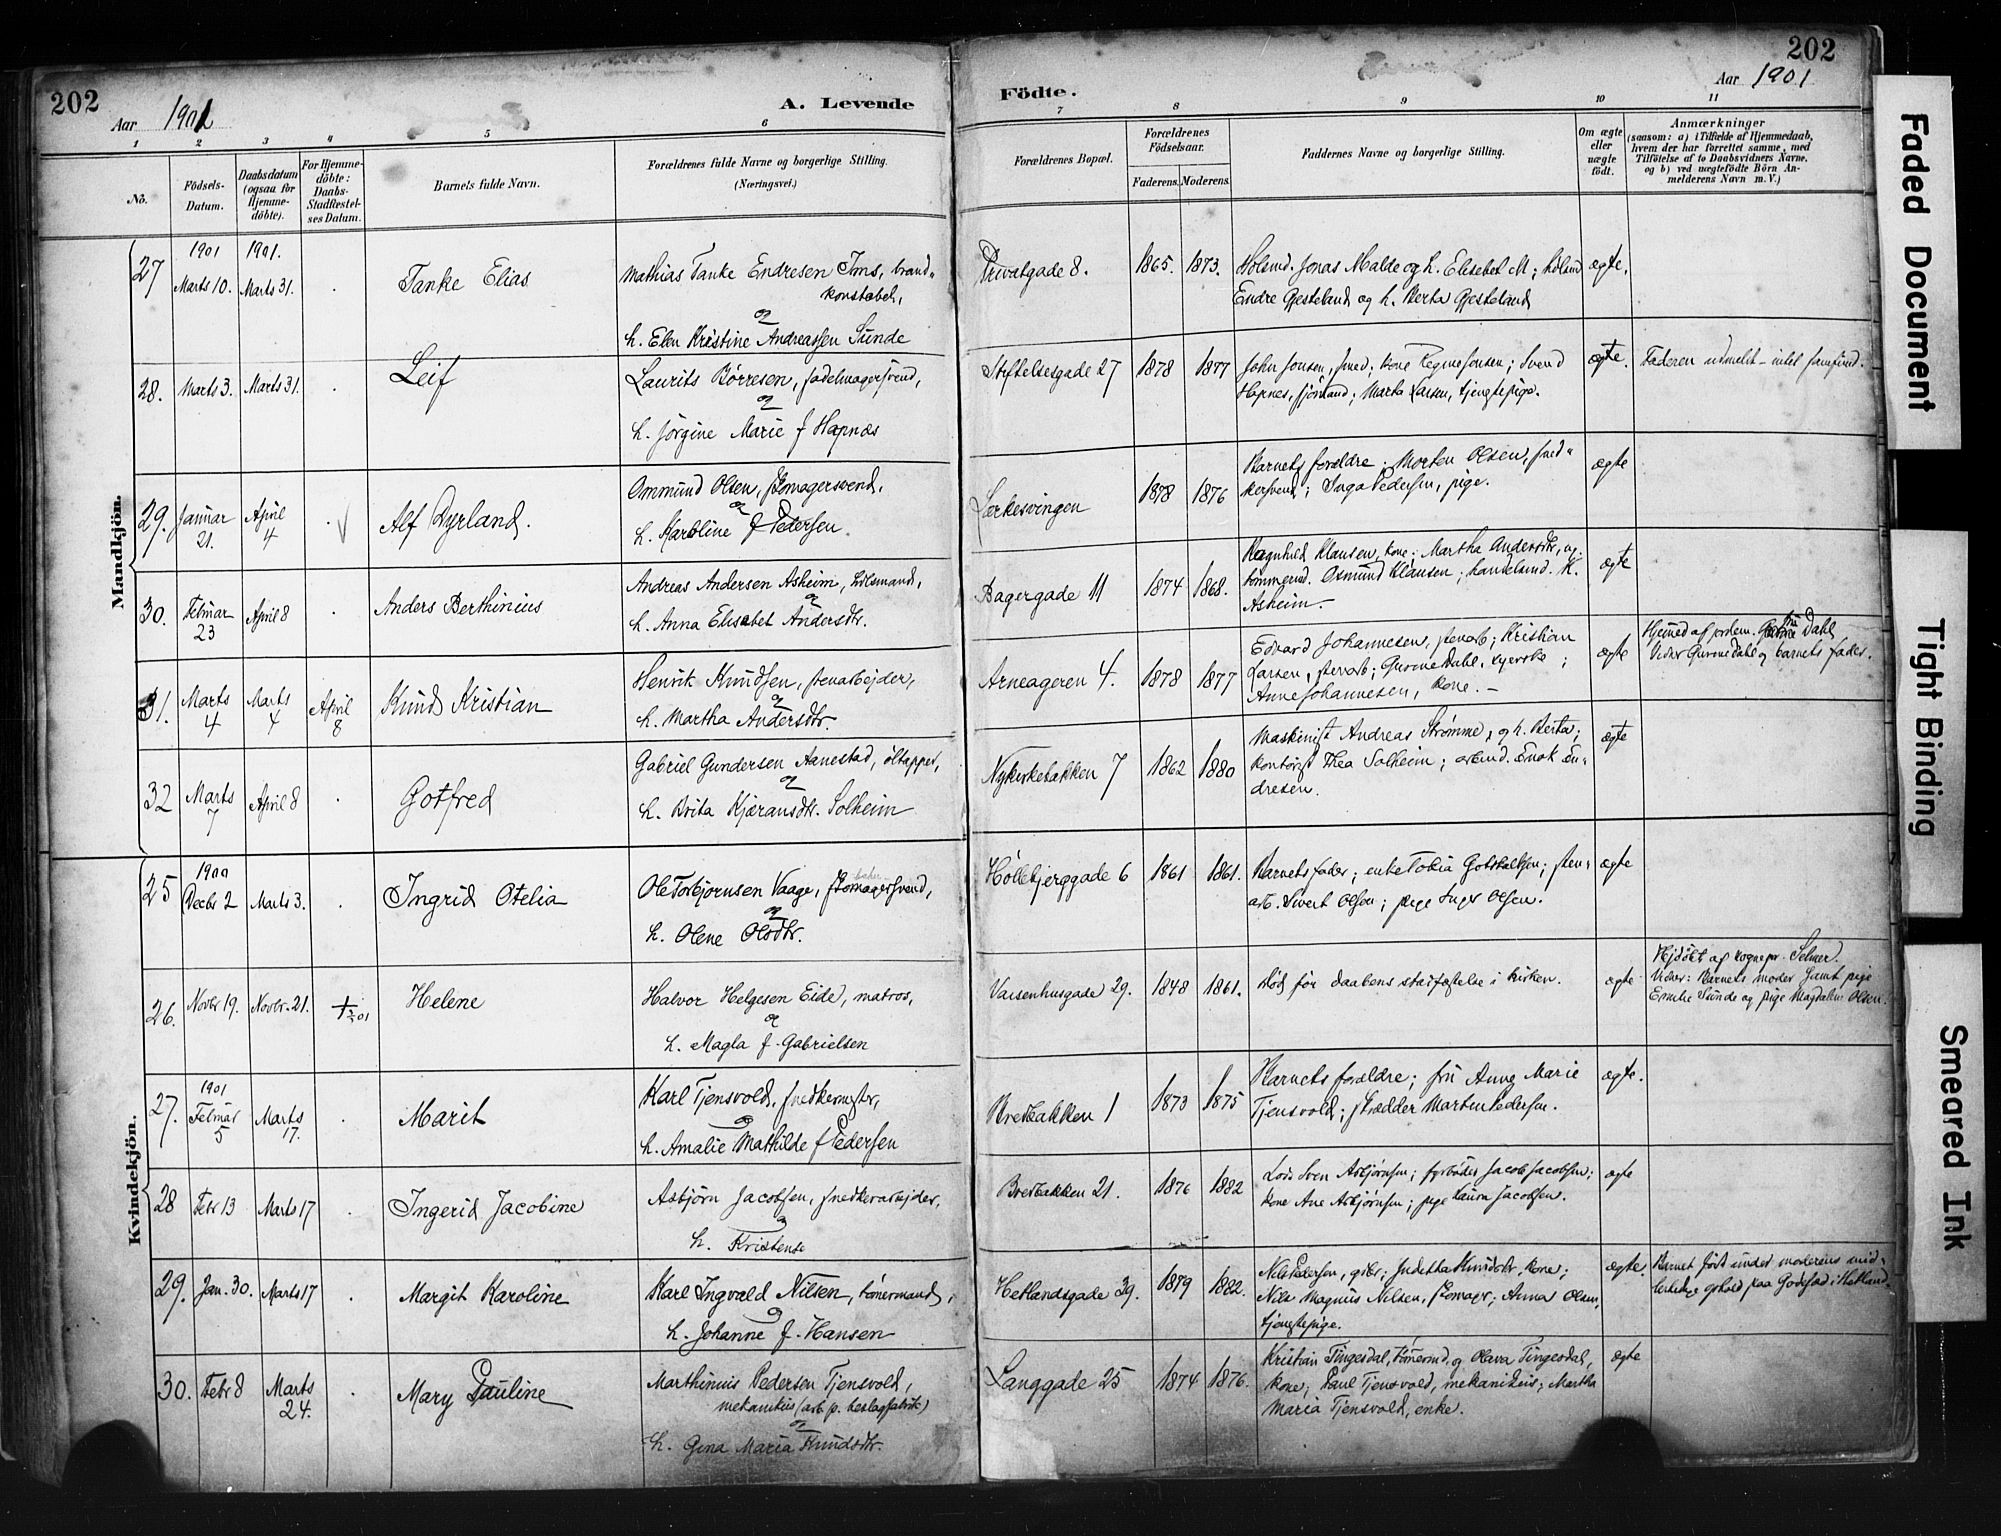 202
Aar 1901
A. Levende
Födte.
Aar 1901
202
1 2 3 4 5 6 7 8 9 10 11
No.
Födsels-Datum.
Daabsdatum (ogsaa for Hjemme-döbte).
For Hjemme-döbte: Daabs-Stadfæstel-ses Datum.
Barnets fulde Navn.
Forældrenes fulde Navne og borgerlige Stilling.
(Næringsvei.)
Forældrenes Bopæl.
Forældrenes Födselsaar.
Faderens. Moderens.
Faddernes Navne og borgerlige Stilling.
Om ægte eller uægte födt.
Anmærkninger
(saasom: a) i Tilfælde af Hjemmedaab,
hvem der har forrettet samme, med
Tilföielse af to Daabsvidners Navne,
og b) ved uægtefödte Börn An-
melderens Navn m. V.)
Mandkjön.
27 1901 Marts 10. 1901. Marts 31. Tanke Elias
Mathias Tanke Endresen Ims, brand-
konstabel,
og
h. Elen Kristine Andreassen Sunde
Privatgade 8. 1865. 1873.
Holsmd. Jonas Malde og h. Elisebet M; hdlsmd
Endre Gjesteland og h. Berta Gjesteland
ægte.
28. Marts 3. Marts 31. Leif
Laurits Børresen, sadelmagersvend,
og
h. Jørgine Marie f Hapnæs
Stiftelsesgade 27 1878 1877
John Jonsen, smed, kone Regine Jonsen; Svend
Hapnes, sjömand; Marta Larsen, tjenestepige.
ægte.
Faderen udmeldt - intet samfund.
29. Januar 21. April 4 Alf Dyrland.
Ommund Olsen, skomagersvend,
og
h. Karoline f Pedersen.
Lerkesvingen 1878 1876
Barnets forældre; Morten Olsen, sned-
kersvend; Inga Pedersen, pige.
ægte
30. Februar 23 April 8 Anders Berthinius
Andreas Andersen Asheim, hdlsmand,
og
h. Anna Elisabet Andersdtr.
Bagergade 11 1874 1868.
Ragnhild Klausen, kone; Martha Andersdtr, ug.
tømmermd. Osmund Klausen; handelsmd. K.
Asheim.
ægte
31. Marts 4 Marts 4 April 8 Knud Kristian
Henrik Knudsen, stenarbejder,
og
h. Martha Andersdtr.
Arneageren 4. 1878 1877
Edvard Johannesen, stenarb; Kristian
Larsen, stenarb; Gurine Dahl, syerske;
Anne Johannesen, kone.
ægte
Hjemmed af jordem. Dahl
Vidner Gurine Dahl og barnets fader.
32 Marts 7 April 8 Gotfred
Gabriel Gundersen Aanestad, öltapper,
og
h. Brita Kjæransdtr. Solheim
Nykirkebakken 7 1862 1880
Maskinist Andreas Strømme, og h. Berta;
kontorist Thea Solheim; arbmd. Enok En-
dresen.
ægte
Kvindekjön.
25 1900 Decbr 2 Marts 3. Ingrid Otelia
Ole Torbjørnsen Vaage, skomagersvend,
og
h. Olene Olsdtr.
Höllebjerggade 6 1861 1861.
Barnets fader; enke Tobia Gotskalksen; sten-
arb. Sivert Olsen; pige Inger Olsen.
ægte
26. Novbr 19. Novbr. 21. Helene
Halvor Helgesen Eide, matros,
og
h. Magla f. Gabrielsen
Vaisenhusgade 29. 1848 1861.
Död før daabens stadfæstelse i kirken.
ægte
Hjdöbt af sognepr. Selmer.
Vidner: Barnets moder samt pige
Emelie Sunde og pige Magdalene Olsen.
27. 1901 Februar 5 Marts 17. Marit
Karl Tjensvold, snedkermester,
og
h. Amalie Mathilde f Pedersen
Bredbakken 1 1873 1875
Barnets forældre; fru Anna Marie
Tjensvold; skrædder Martin Pedersen.
ægte.
28 Febr 13 Marts 17 Ingerid Jacobine
Asbjörn Jacobsen, snedkerarbejder,
og
h. Kristense
Bredbakken 21. 1876 1882
Lods Sven Asbjørnsen; fyrböder Jacob Jacobsen;
kone Ane Asbjørnsen; pige Laura Jacobsen.
ægte
29. Jan. 30. Marts 17 Margit Karoline
Karl Ingvald Nilsen, tönermand,
og
h. Johanne f. Hansen
Hetlandsgade 39. 1879 1882.
Nils Pedersen, Indetta Knudsdtr, kone;
Nils Magnus Nilsen, skomagr; Anna Olsen,
tjenestepige.
ægte.
Barnet födt under moderens mid-
lertidige ophold paa Hetland.
30. Febr 8 Marts 24. Mary Pauline
Marthinius Pedersen Tjensvold,
mekanikus (arb. p. beslagfabrik)
og
h. Gina Maria Knudsdtr.
Langgade 25 1874 1876.
Kristian Tingesdal, tönermd. og Olava Tingesdal,
kone; Paul Tjensvold, mekanikus; Martha
Maria Tjensvold, enke.
ægte
Faded Document
Tight Binding
Smeared Ink